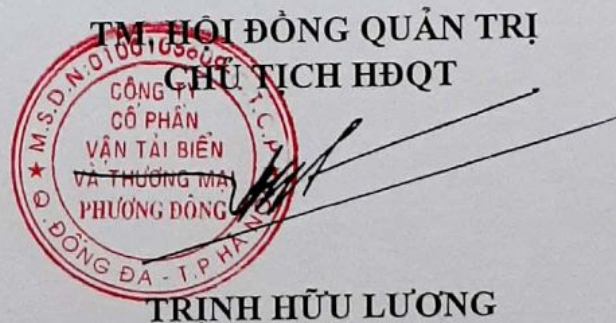 TM, HỘI ĐỒNG QUẢN TRỊ
CHỦ TỊCH HĐQT
CÔNG TY
CỔ PHẦN
VẬN TẢI BIỂN
VÀ THƯƠNG MẠI
PHƯƠNG ĐÔNG
Q. ĐỐNG ĐA - T.P HÀ NỘI
TRỊNH HỮU LƯƠNG